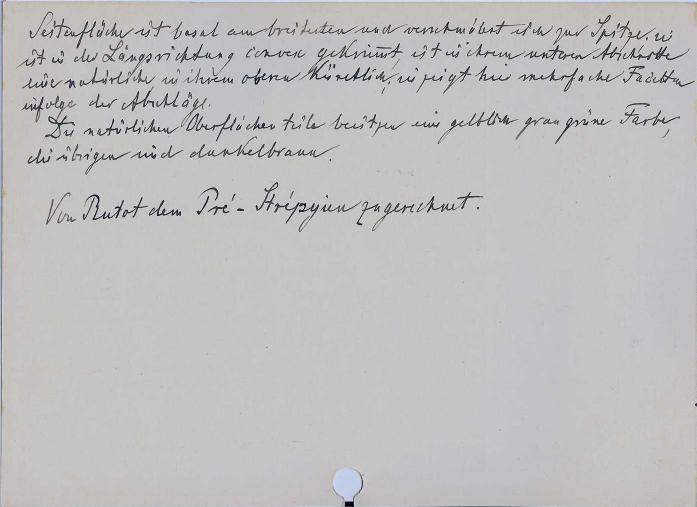 Seitenfläche ist basal am breitesten und verschmälert sich zur Spitze. sie
ist in der Längsrichtung convex gekrümmt, ist in ihrem unteren Abschnitte
eine natürliche in ihrem oberen künstlich, sie zeigt hier mehrfache Facetten
infolge der Abschläge.
Die natürlichen Oberflächenteile besitzen eine gelblich graugrüne Farbe,
die übrigen sind dunkelbraun.
Von Rutot dem Pré-Strépyien zugerechnet.